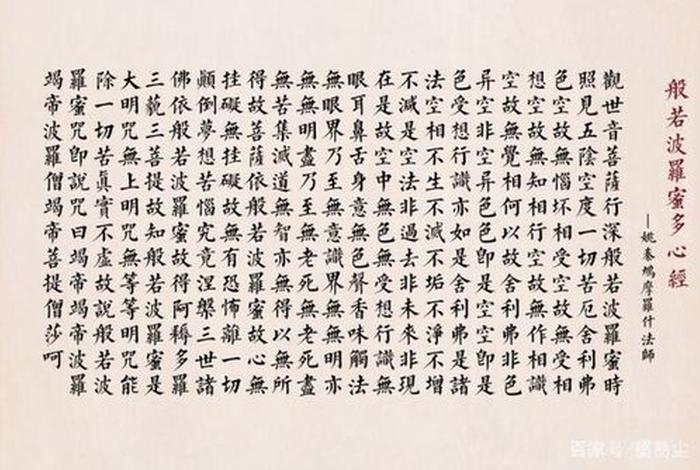 般若波羅蜜多心經
—姚秦鳩摩羅什法師
觀世音菩薩行深般若波羅蜜時
照見五陰空度一切苦厄舍利弗
色空故無惱坏相受空故無受相
想空故無知相行空故無作相識
空故無覺相何以故舍利弗非色
异空非空异色色即是空空即是
色受想行識亦如是舍利弗是諸
法空相不生不滅不垢不淨不增
不減是空法非過去非未來非現
在是故空中無色無受想行識無
眼耳鼻舌身意無色聲香味觸法
無眼界乃至無意識界無無明亦
無無明盡乃至無老死無老死盡
無苦集滅道無智亦無得以無所
得故菩薩依般若波羅蜜故心無
挂礙無挂礙故無有恐怖離一切
顛倒夢想苦惱究竟涅槃三世諸
佛依般若波羅蜜故得阿耨多羅
三藐三菩提故知般若波羅蜜是
大明咒無上明咒無等等明咒能
除一切苦真實不虛故說般若波
羅蜜咒即說咒曰竭帝竭帝波羅
竭帝波羅僧竭帝菩提僧莎呵
百家号/